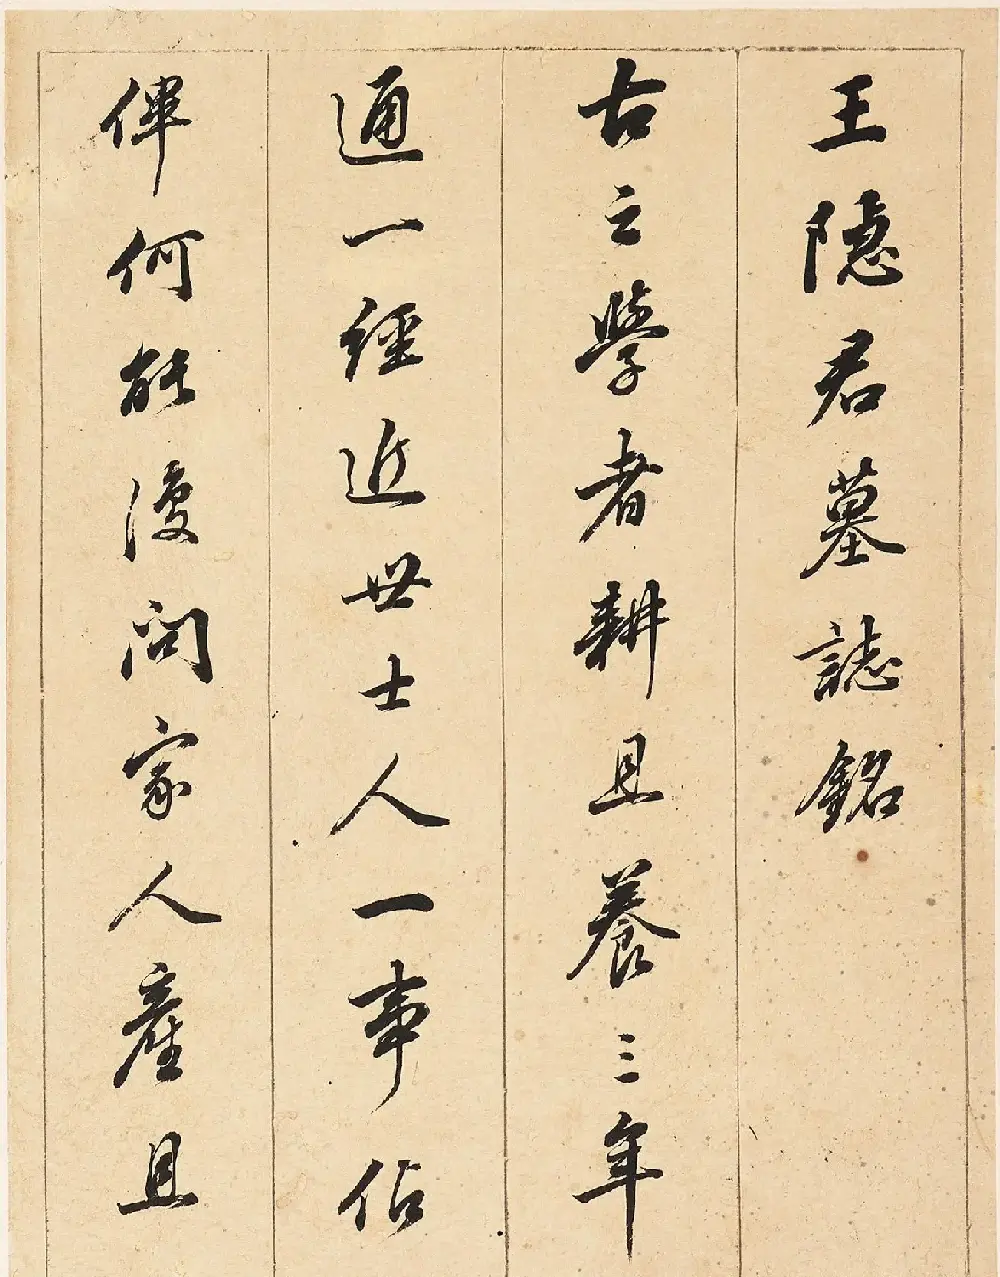 王隱君墓誌銘
古之學者耕且養三年
通一經近世士人一事佔
俾何能復問家人產且